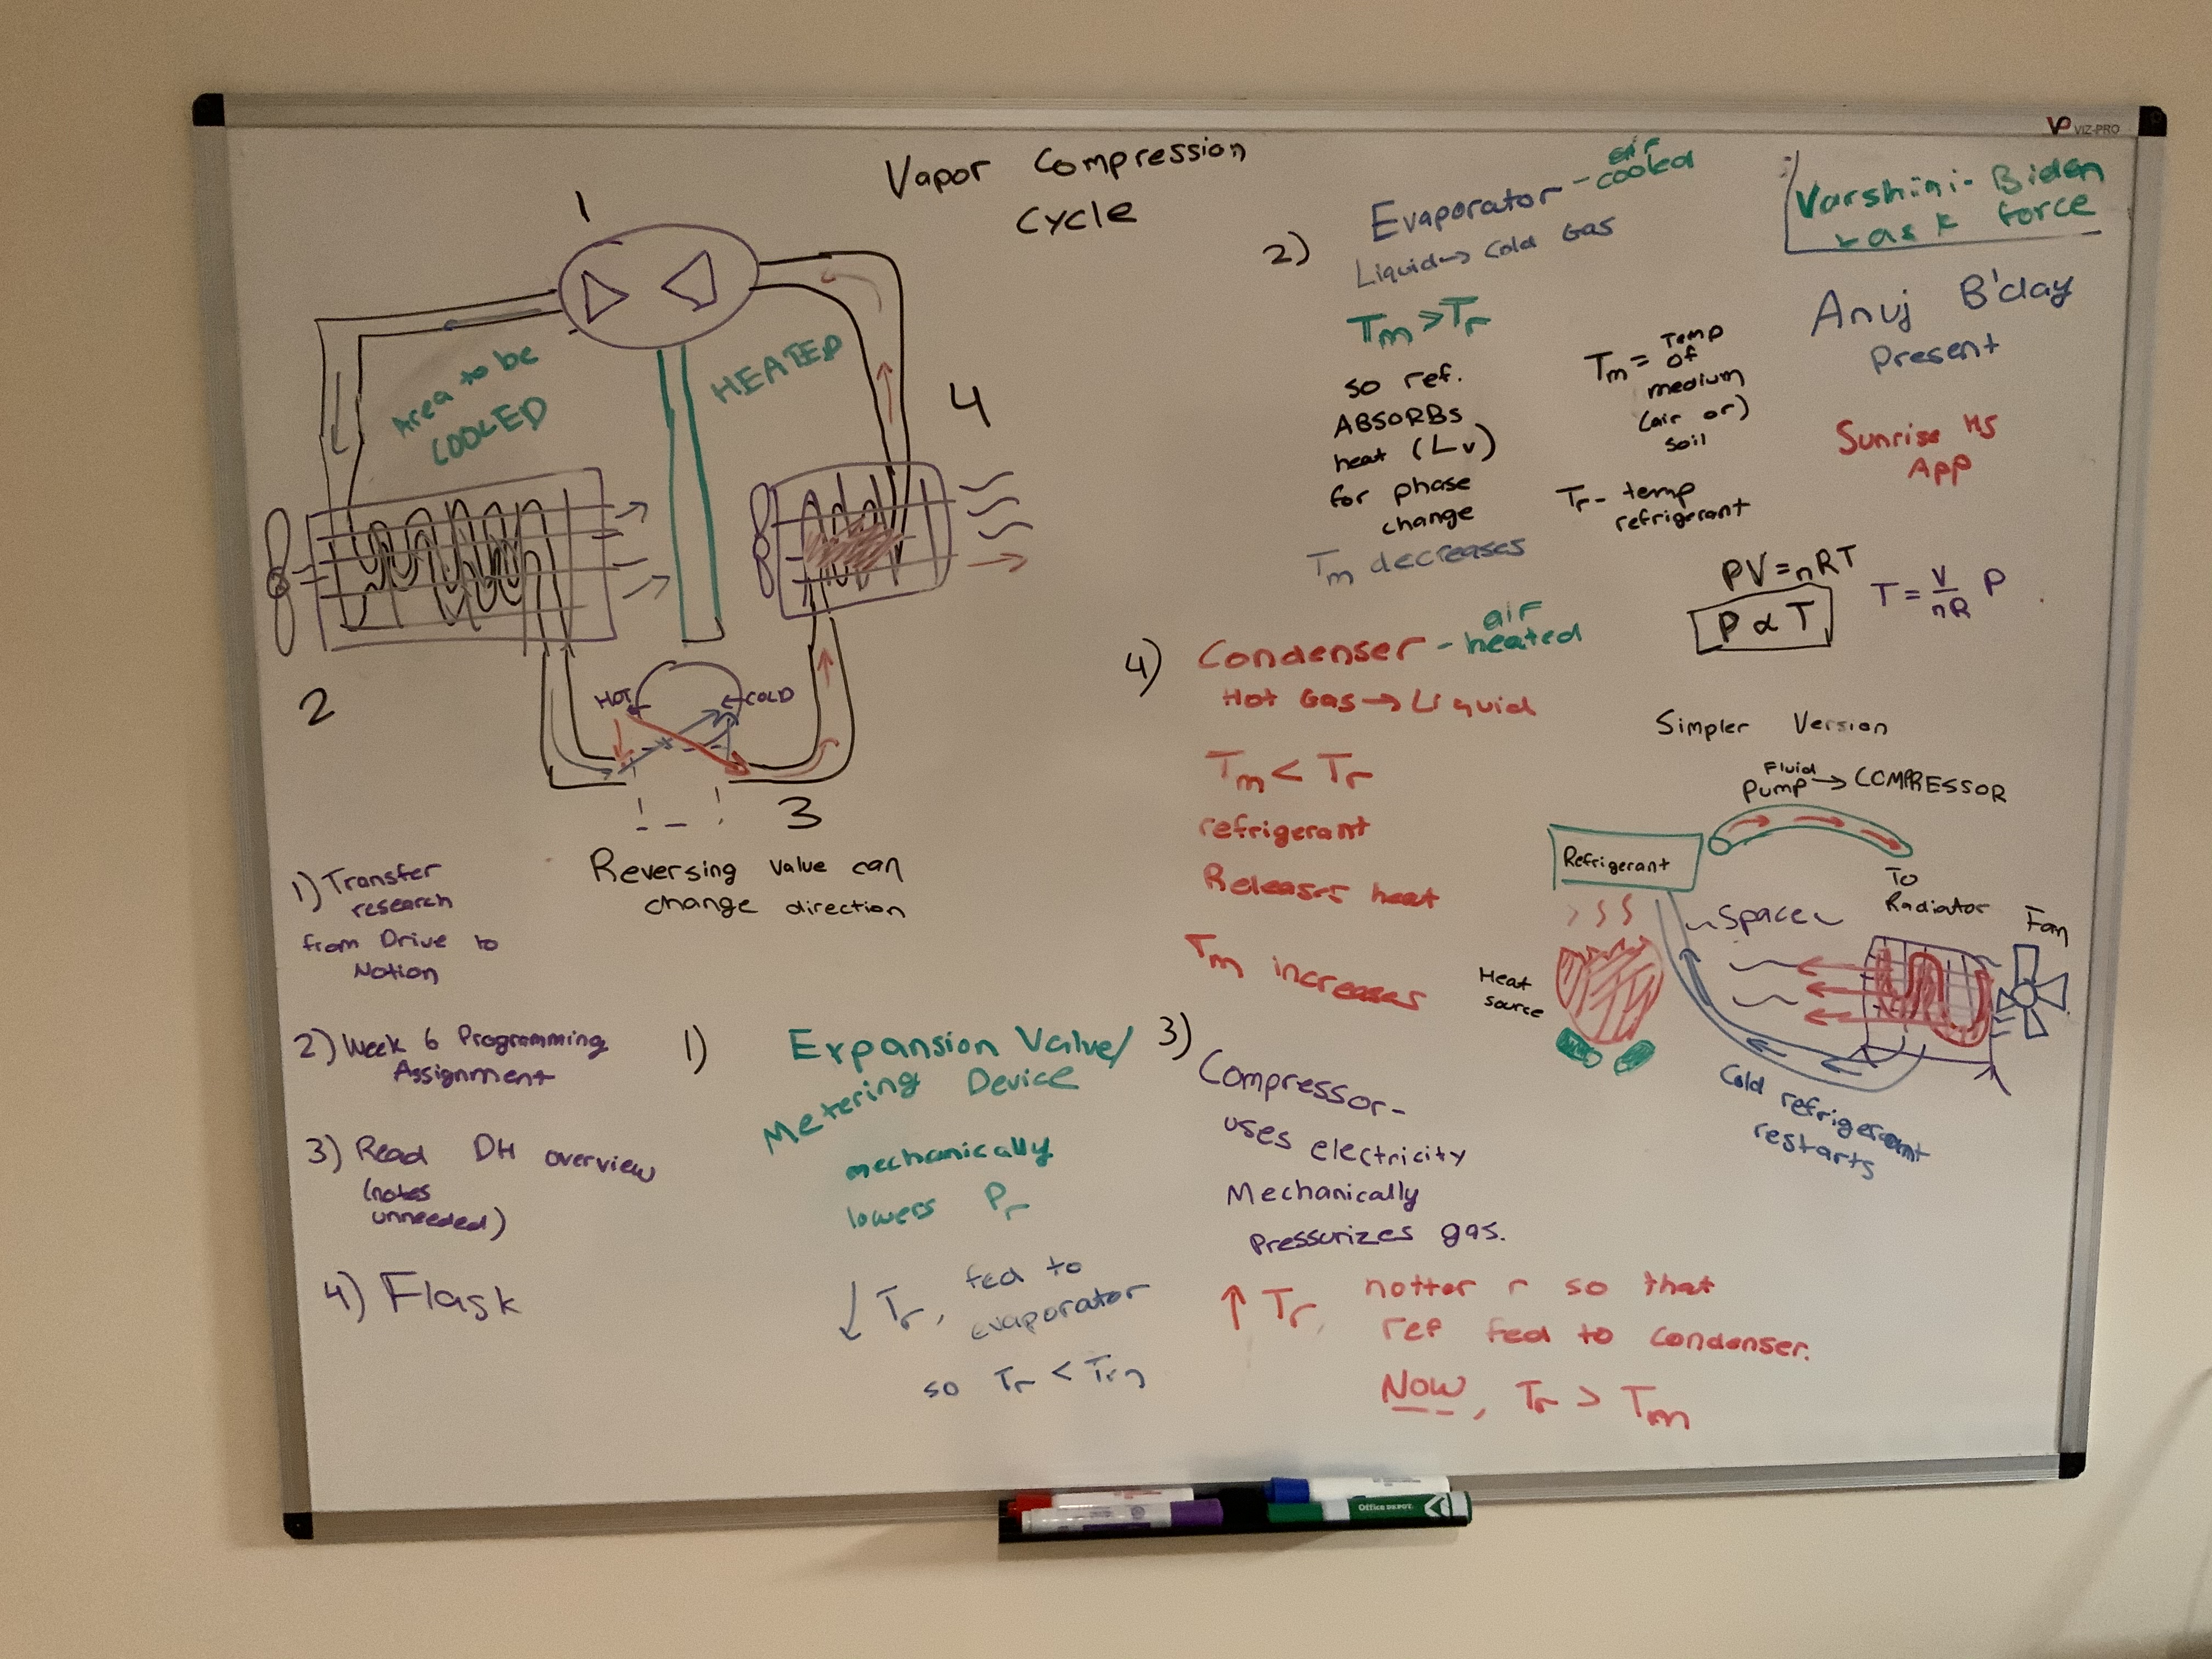 VIZ-PRO
Vapor Compression
Cycle
1
Area to be
COOLED
HEATED
4
2
HOT
COLD
3
Reversing value can
change direction
1) Transfer
research
from Drive to
Notion
2) Week 6 Programming
Assignment
3) Read DH overview
(notes
unneeded)
4) Flask
1) Expansion Valve/
Metering Device
mechanically
lowers Pr
↓ Tr, fed to
evaporator
so Tr < Tm
2) Evaporator - air
cooled
Liquid → Cold Gas
Tm > Tr
so ref.
ABSORBS
heat (Lv)
for phase
change
Tm decreases
Tm = Temp
of
medium
(air or)
soil
Tr - temp
refrigerant
PV = nRT
P ∝ T
T = V/nR P
4) Condenser - air
heated
Hot Gas → Liquid
Tm < Tr
refrigerant
Releases heat
Tm increases
3) Compressor -
uses electricity
Mechanically
Pressurizes gas.
↑ Tr, hotter r so that
ref fed to condenser.
NOW, Tr > Tm
Varshini - Biden
task force
Anuj B'day
present
Sunrise MS
App
Simpler Version
Fluid
Pump → COMPRESSOR
Refrigerant
To
Radiator
Space
Fan
Heat
source
Cold refrigerant
restarts
Office DEPOT